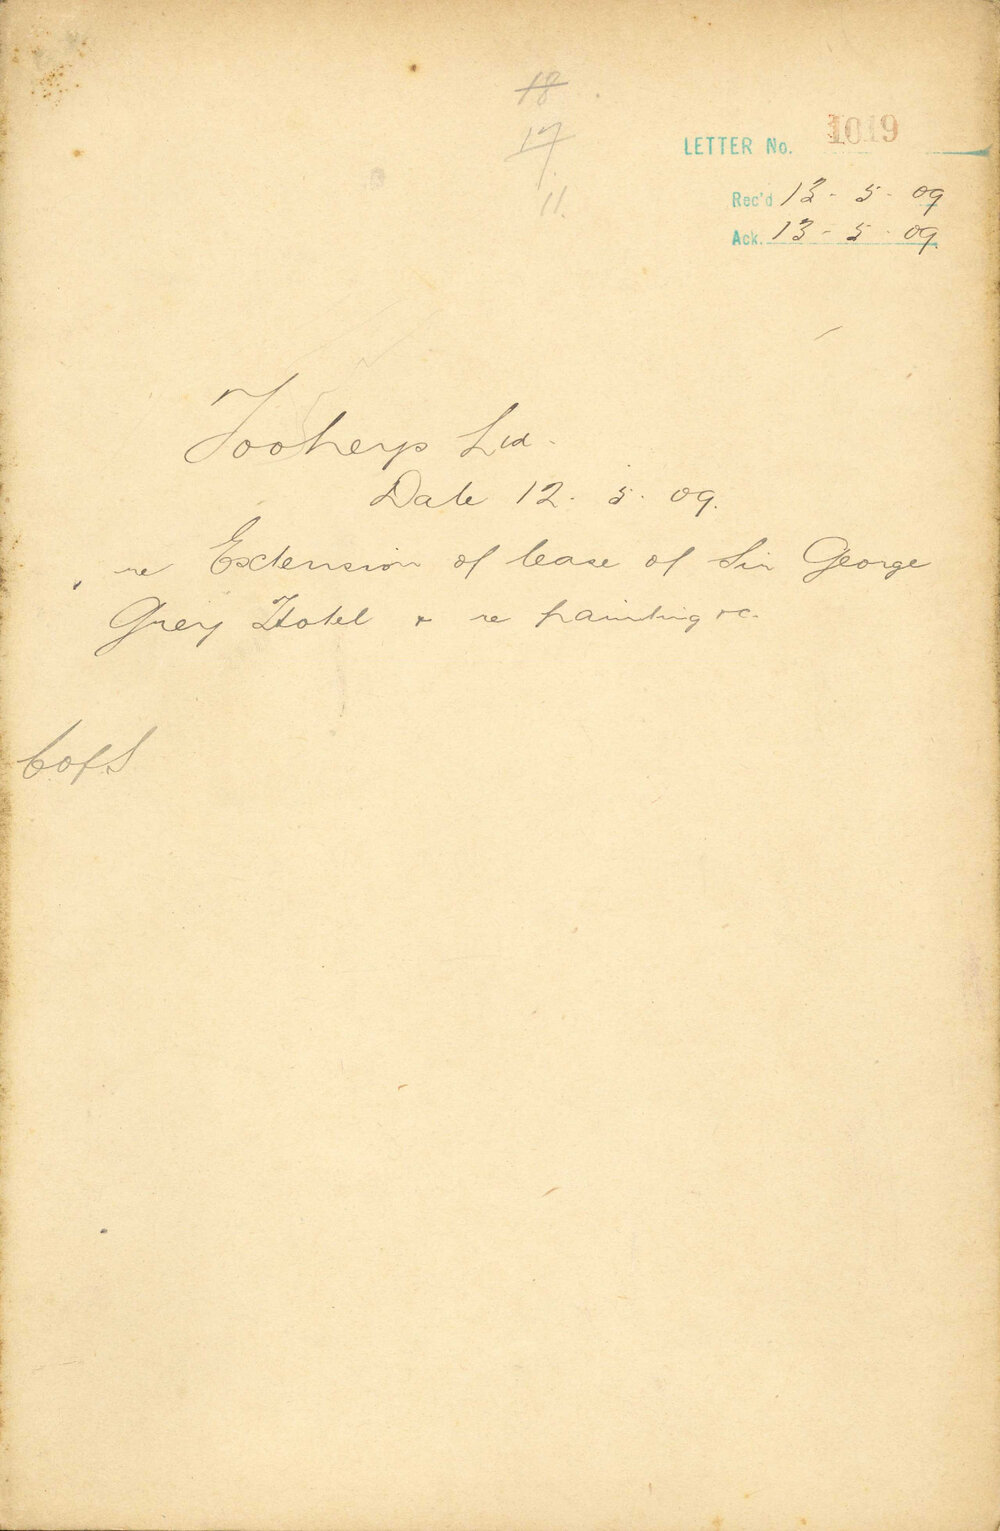 18
17
11.
LETTER No. 1019
Rec'd 13 - 5 - 09
Ack. 13 - 5 - 09
Tooheys Ltd.
Date 12. 5. 09.
re Extension of lease of Sir George
Grey Hotel & re painting &c.
C of S